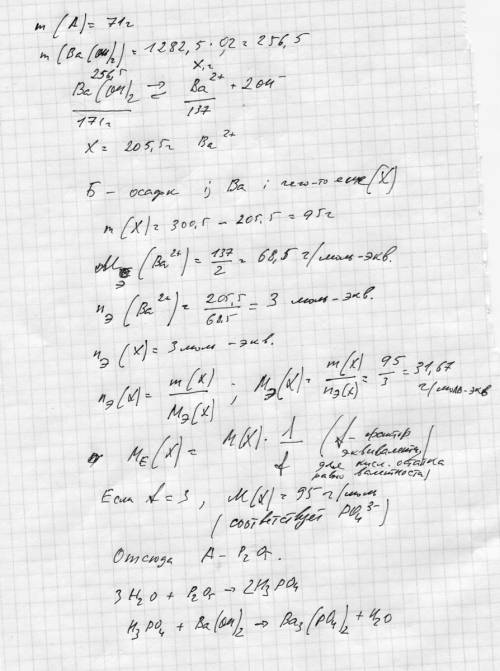 m(A) = 71г
m(Ba(OH)₂) = 1282,5 · 0,2 = 256,5
256,5 X г
Ba(OH)₂ ⇄ Ba²⁺ + 2OH⁻
171г 137
X = 205,5г Ba²⁺
Б – осадок из Ba и чего-то еще (X)
m(X) = 300,5 − 205,5 = 95г
Mэ(Ba²⁺) = 137/2 = 68,5 г/моль-экв.
nэ(Ba²⁺) = 205,5/68,5 = 3 моль-экв.
nэ(X) = 3 моль-экв.
nэ(X) = m(X)/Mэ(X) ; Mэ(X) = m(X)/nэ(X) = 95/3 = 31,67 г/моль-экв
ME(X) = M(X) · 1/f (f – фактор эквивалентн. для кисл. остатка равно валентности)
Если f = 3, M(X) = 95 г/моль
(соответствует PO₄³⁻)
Отсюда A – P₂O₅.
3H₂O + P₂O₅ → 2H₃PO₄
H₃PO₄ + Ba(OH)₂ → Ba₃(PO₄)₂ + H₂O